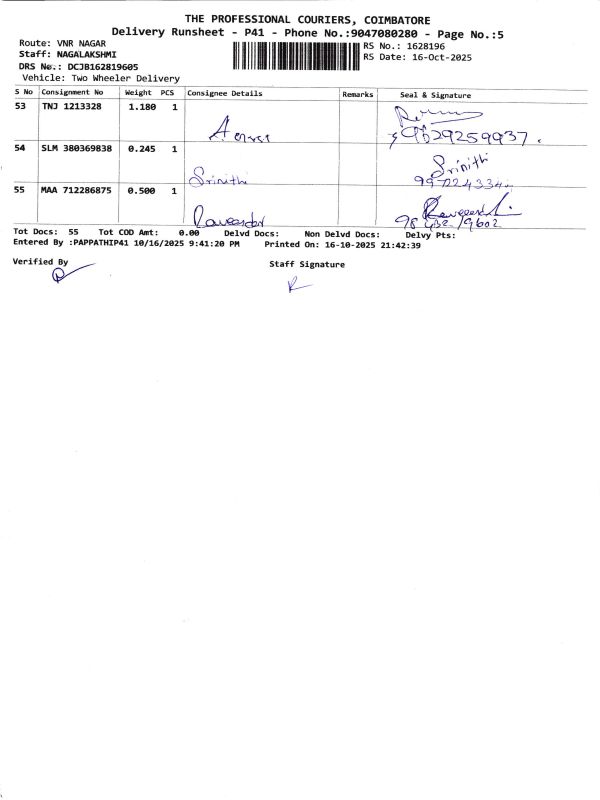 THE PROFESSIONAL COURIERS, COIMBATORE
Delivery Runsheet - P41 - Phone No.:9047080280 - Page No.:5
Route: VNR NAGAR
RS No.: 1628196
Staff: NAGALAKSHMI
RS Date: 16-Oct-2025
DRS No.: DCJB162819605
Vehicle: Two Wheeler Delivery
S No Consignment No Weight PCS Consignee Details Remarks Seal & Signature
53 TNJ 1213328 1.180 1
9629259937
54 SLM 380369838 0.245 1
Srinithi Srinithi
55 MAA 712286875 0.500 1
Tot Docs: 55 Tot COD Amt: 0.00 Delvd Docs: Non Delvd Docs: Delvy Pts:
Entered By :PAPPATHIP41 10/16/2025 9:41:20 PM Printed On: 16-10-2025 21:42:39
Verified By Staff Signature